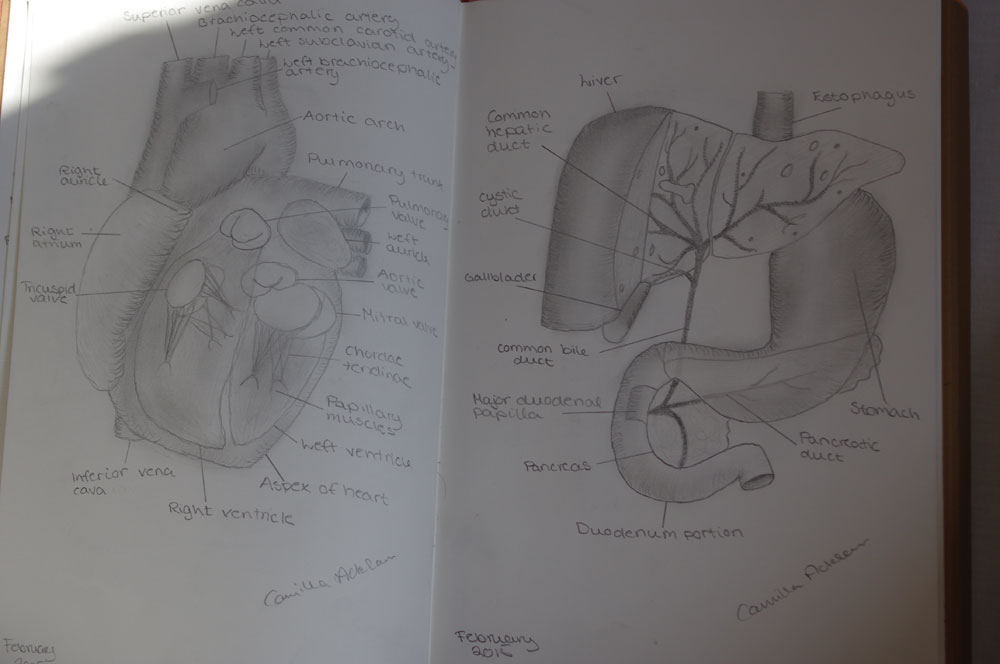 Superior vena cava
Brachiocephalic artery
Left common carotid artery
Left subclavian artery
Left brachiocephalic
artery
Aortic arch
Pulmonary trunk
Right
auricle
Pulmonary
valve
Right
atrium
Left
auricle
Aortic
valve
Tricuspid
valve
Mitral valve
Chordae
tendinae
Papillary
muscles
Left ventricle
Inferior vena
cava
Aspex of heart
Right ventricle
Camilla
February
Liver
Esophagus
Common
hepatic
duct
cystic
duct
Gallbladder
common bile
duct
Major duodenal
papilla
Stomach
Pancreatic
duct
Pancreas
Duodenum portion
Camilla
February